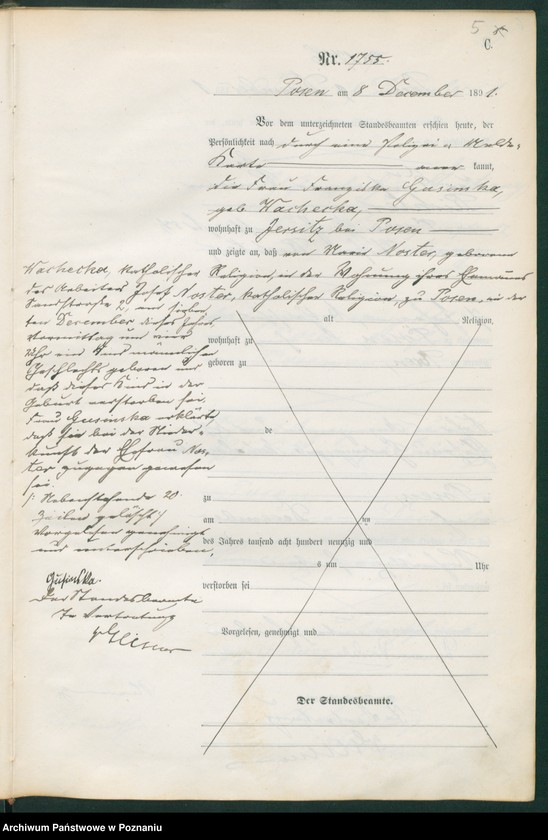 5
C.
Nr. 1755.
Posen am 8 December 1891.
Vor dem unterzeichneten Standesbeamten erschien heute, der
Persönlichkeit nach durch eine Polizei-Melde-
Karte kannt,
die Frau Franziska Gusinska,
geb Wachecka,
wohnhaft zu Jersitz bei Posen
und zeigte an, daß von Marie Noster, geborene
Wachecka, katholischer Religion, in der Wohnung ihres Ehemannes
des Arbeiters Josef Noster, katholischer Religion, zu Posen, in der
Sandstraße 2, am siebten
ten December dieses Jahres
Vormittag um vier
Uhr ein Kind männlichen
Geschlechts geboren und
daß dieses Kind in der
Geburt verstorben sei.
Frau Gusinska erklärte,
daß sie bei der Nieder-
kunft der Ehefrau Nos-
ter zugegen gewesen
sei.
/: Nebenstehende 20
Zeilen gelöscht :/
Vorgelesen genehmigt
und unterschrieben,
Gusinska.
Der Standesbeamte
In Vertretung
alt Religion,
wohnhaft zu
geboren zu
de
zu
am ten
des Jahres tausend acht hundert neunzig und
s um Uhr
verstorben sei
Vorgelesen, genehmigt und
Der Standesbeamte.
Archiwum Państwowe w Poznaniu